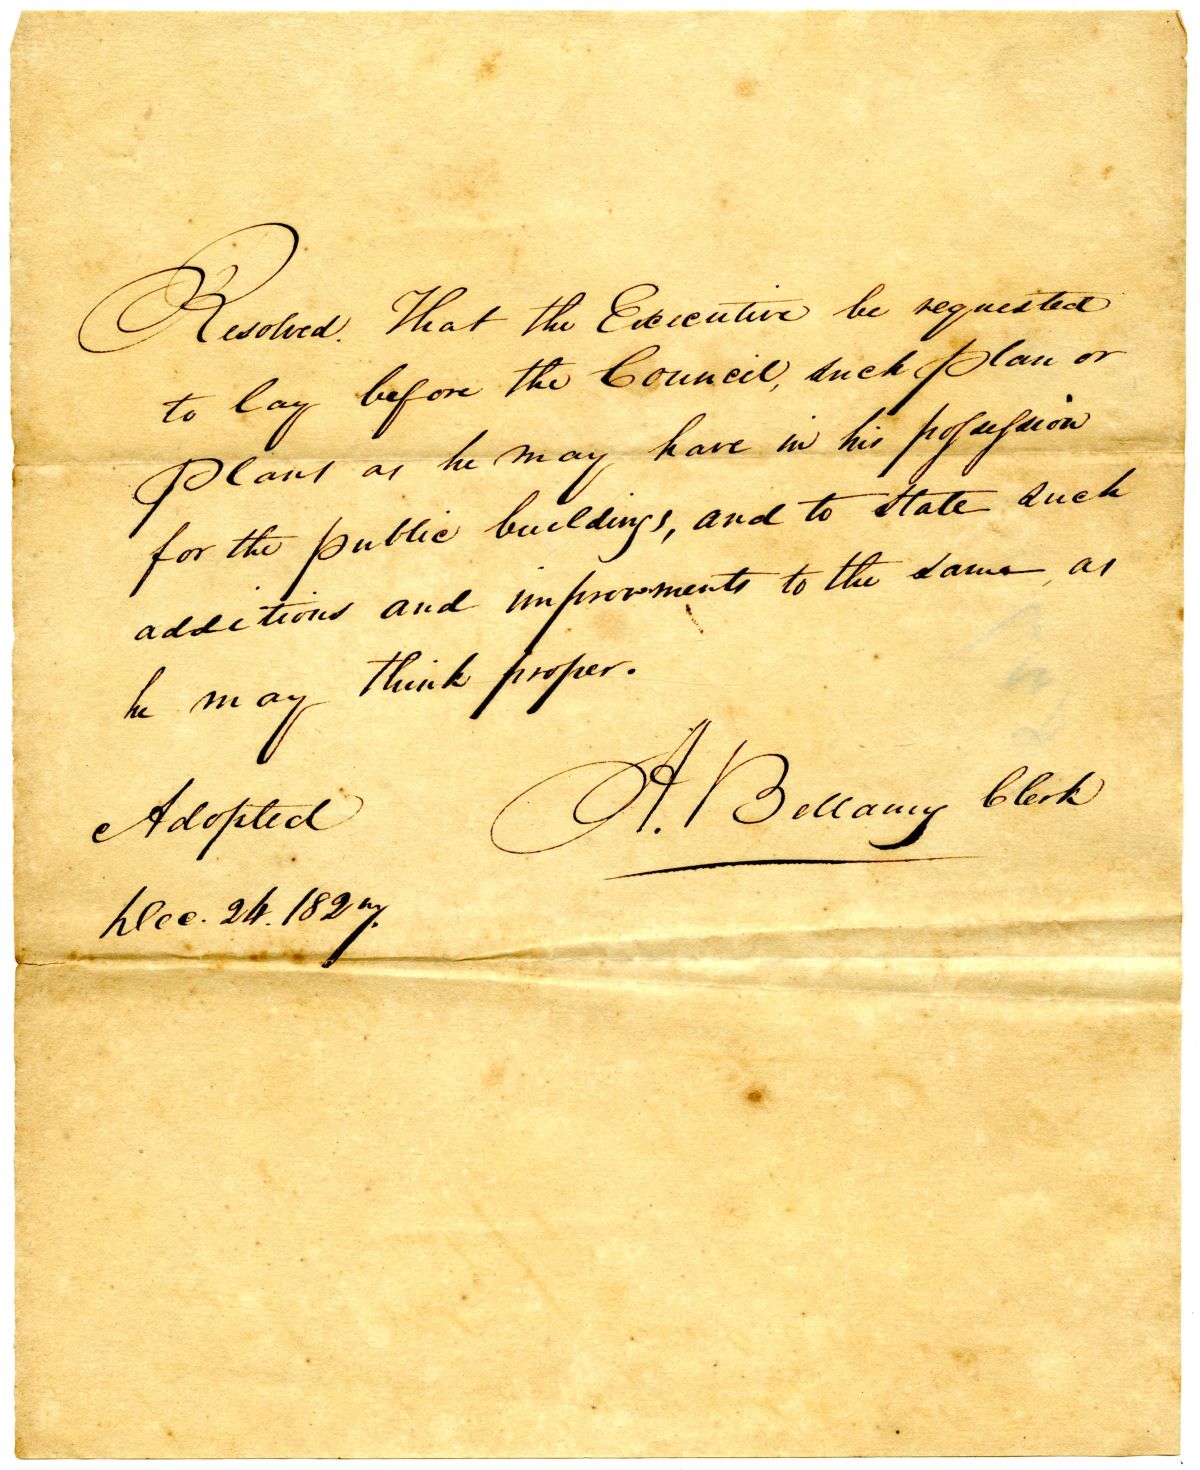 Resolved. That the Executive be requested
to lay before the Council, such plan or
plans as he may have in his possession
for the public buildings, and to state such
additions and improvements to the same, as
he may think proper.
A. Bellamy Clerk
Adopted
Dec. 24. 1827.